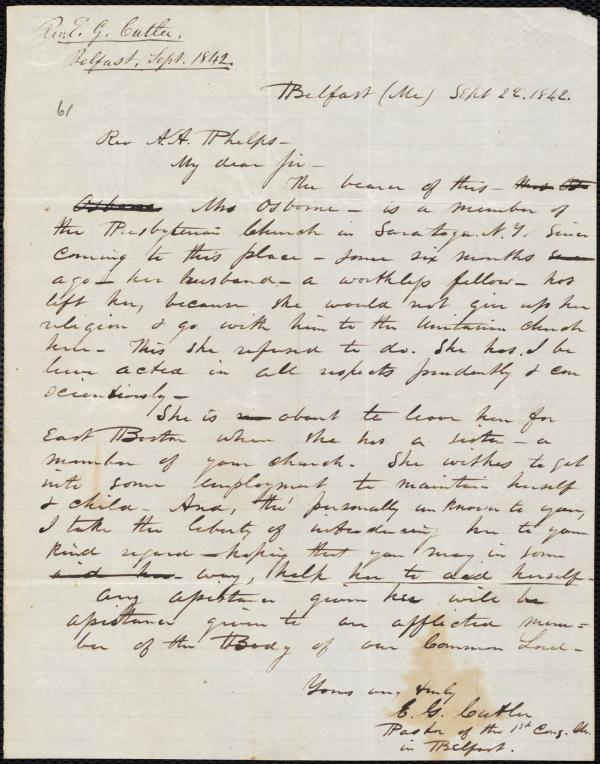 Rev. E. G. Cutler.
Belfast, Sept. 1842.
61
Belfast (Me) Sept 22. 1842.
Rev A. A. Phelps –
My dear Sir –
The bearer of this –
Osborne Mrs Osborne – is a member of
the Presbyterian Church in Saratoga N.Y. Since
coming to this place – some six months
ago – her husband – a worthless fellow – has
left her, because she would not give up her
religion & go with him to the Unitarian church
here – This she refused to do. She has, I be
lieve acted in all respects prudently & con
scientiously –
She is about to leave here for
East Boston where she has a sister – a
member of your church. She wishes to get
into some employment to maintain herself
& child – And, tho' personally unknown to you,
I take the liberty of introducing her to your
kind regard – hoping that you may in some
aid her way, help her to aid herself –
any assistance given her will be
assistance given to an afflicted mem=
ber of the Body of our Common Lord –
Yours very truly
E. G. Cutler
Pastor of the 1st Cong. Ch.
in Belfast.